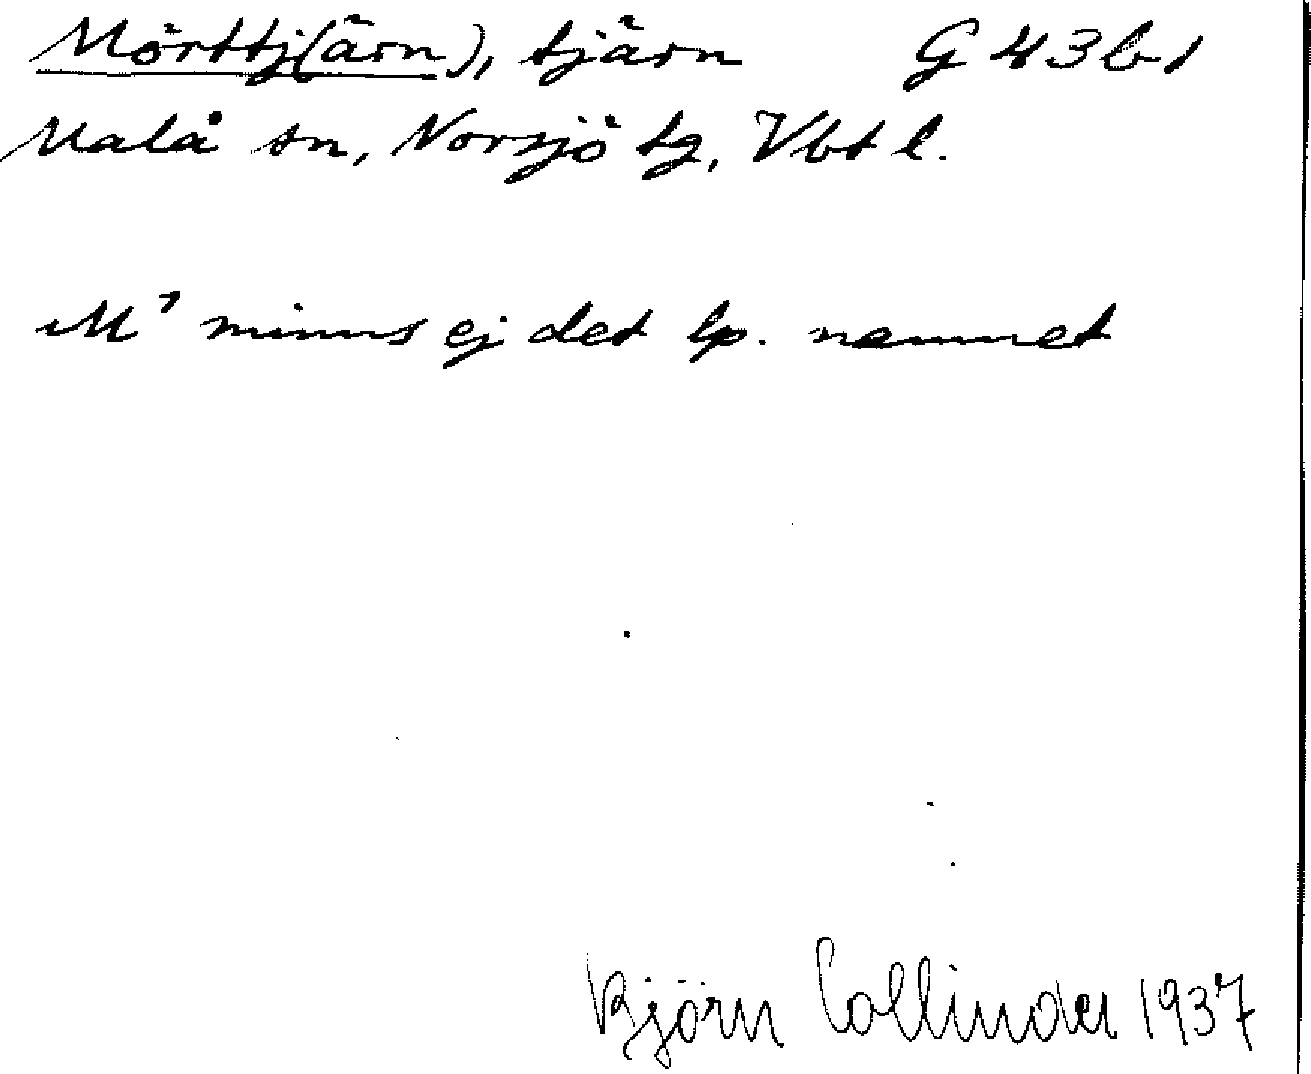 Mörttj(ärn), tjärn G 43 b 1
Malå sn, Norsjö tg, Vbt l.
M¹ minns ej det lp. namnet
Björn Collinder 1937